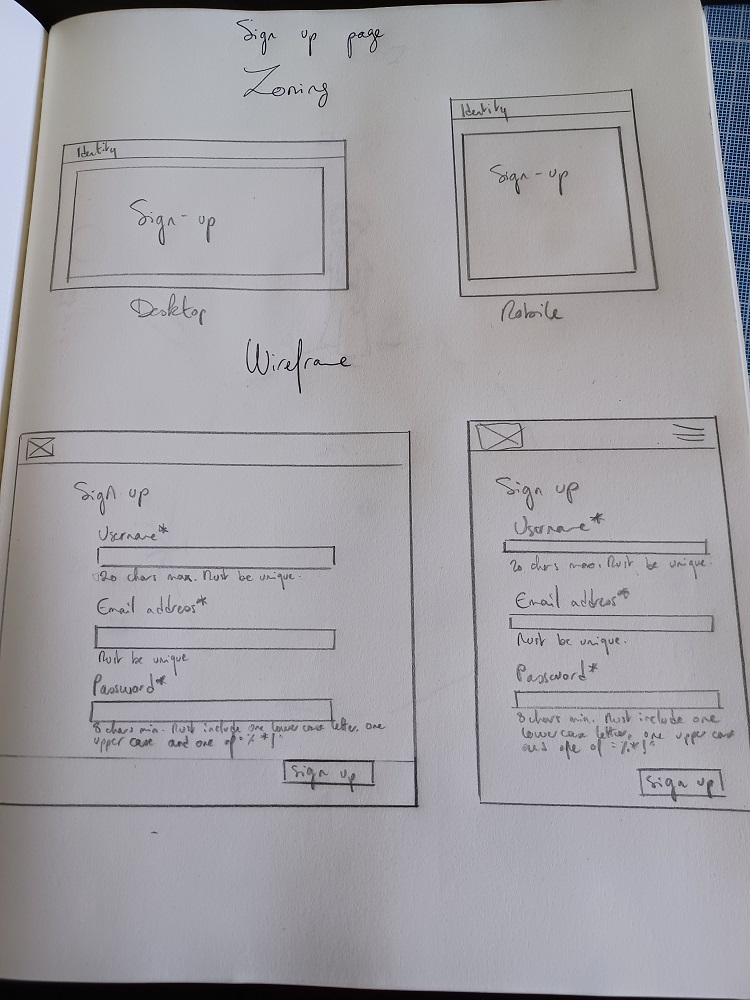 Sign up page
Zoning
Identity
Sign-up
Desktop
Identity
Sign-up
Mobile
Wireframe
Sign up
Username*
20 chars max. Must be unique.
Email address*
Must be unique
Password*
8 chars min. Must include one lower case letter, one
upper case and one of "%*!"
Sign up
Sign up
Username*
20 chars max. Must be unique.
Email address*
Must be unique.
Password*
8 chars min. Must include one
lower case letter, one upper case
and one of "%*!"
Sign up